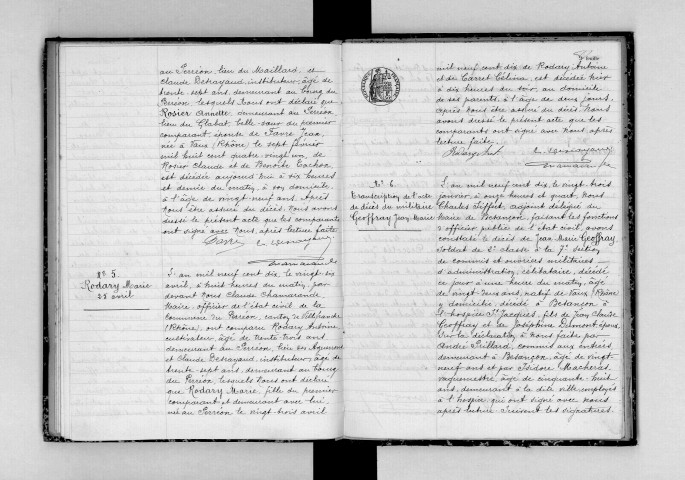 au Perréon, lieu du Maillard, et
Claude Betrayaud, instituteur, âgé de
trente sept ans, demeurant au bourg du
Perréon lesquels Nous ont déclaré que
Rosier Annette, demeurant au Perréon
lieu du Glabat, belle sœur du premier
comparant, épouse de Favre Jean
née à Vaux (Rhône) le sept février
mil huit cent quatre vingt un, de
Rosier Claude et de Benoîte Cochon
est décédée aujourd'hui à dix heures
et demie du matin, à son domicile,
à l'âge de vingt neuf ans. Après
nous être assuré du décès, Nous avons
dressé le présent acte que les comparants
ont signé avec Nous, après lecture faite.
Favre
N° 5.
Rodary Marie
25 avril
L'an mil neuf cent dix, le vingt-six
avril, à huit heures du matin, par
devant Nous Claude Chamarande
Maire, officier de l'état civil de la
Commune du Perréon, canton de Villefranche
(Rhône), ont comparu Rodary Antoine
cultivateur, âgé de trente trois ans
demeurant au Perréon, lieu des
et Claude Betrayaud, instituteur, âgé de
trente-sept ans, demeurant au bourg
du Perréon lesquels Nous ont déclaré
que Rodary Marie, fille du premier
comparant et demeurant avec lui
née au Perréon le vingt-trois avril
feuille
mil neuf cent dix de Rodary Antoine
et de Carret Célina, est décédée hier
à dix heures du soir, au domicile
de ses parents, à l'âge de deux jours.
Après nous être assuré du décès Nous
avons dressé le présent acte que les
comparants ont signé avec Nous après
lecture faite.
Rodary Ant
N° 6.
Transcription de l'acte
de décès du militaire
Geoffray Jean Marie
L'an mil neuf cent dix, le vingt-trois
janvier à onze heures et quart, Nous
Charles Siffert, adjoint délégué du
Maire de Besançon, faisant les fonctions
d'officier public de l'état civil, avons
constaté le décès de Jean-Marie Geoffray,
Soldat de 2e classe à la 7e Section
de commis et ouvriers militaires
d'administration, célibataire, décédé
ce jour à une heure du matin, âgé
de vingt-deux ans, natif de Vaux (Rhône)
y domicilié, décédé à Besançon à
l'hospice St Jacques, fils de Jean Claude
Geoffray et de Joséphine Dumont, époux.
Sur la déclaration à Nous faite par
André Brillard, commis aux entrées
demeurant à Besançon, âgé de vingt-
neuf ans et par Isidore Macherès
vaguemestre, âgé de cinquante huit
ans, demeurant à la dite ville employés
à l'hospice, qui ont signé avec nous
après lecture Suivent les signatures.